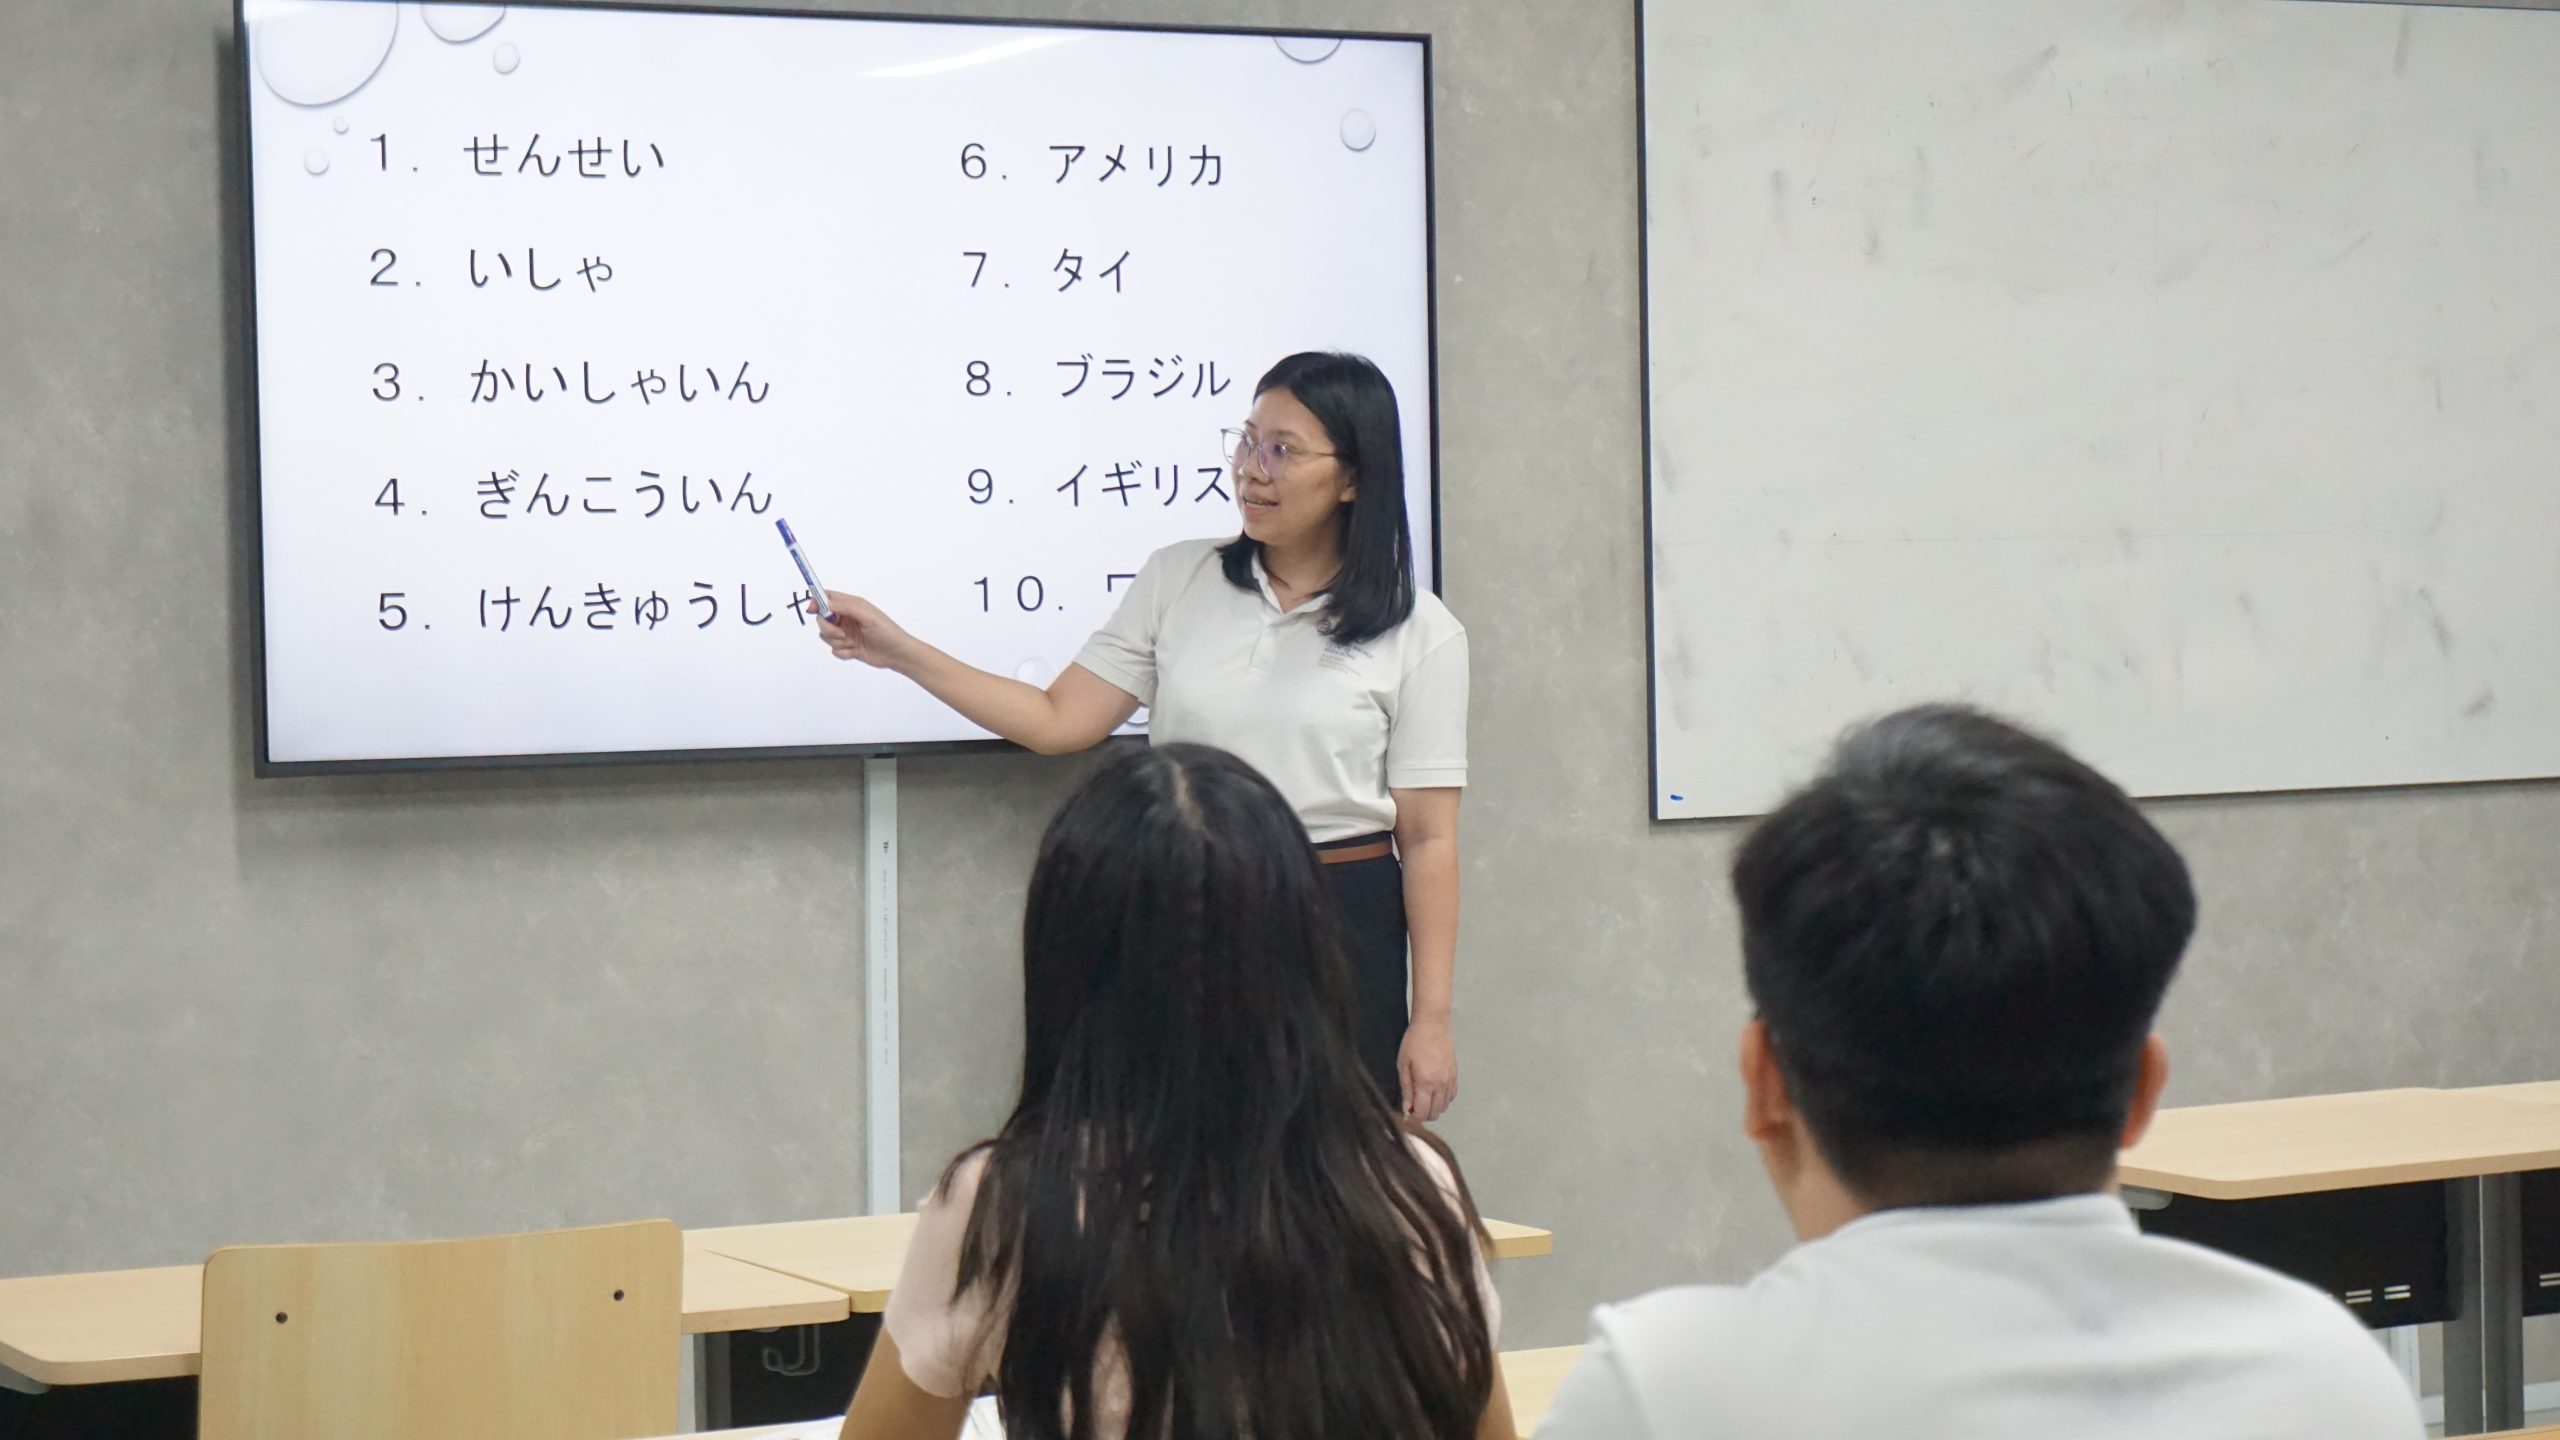 1. せんせい
2. いしゃ
3. かいしゃいん
4. ぎんこういん
5. けんきゅうしゃ
6. アメリカ
7. タイ
8. ブラジル
9. イギリス
10.